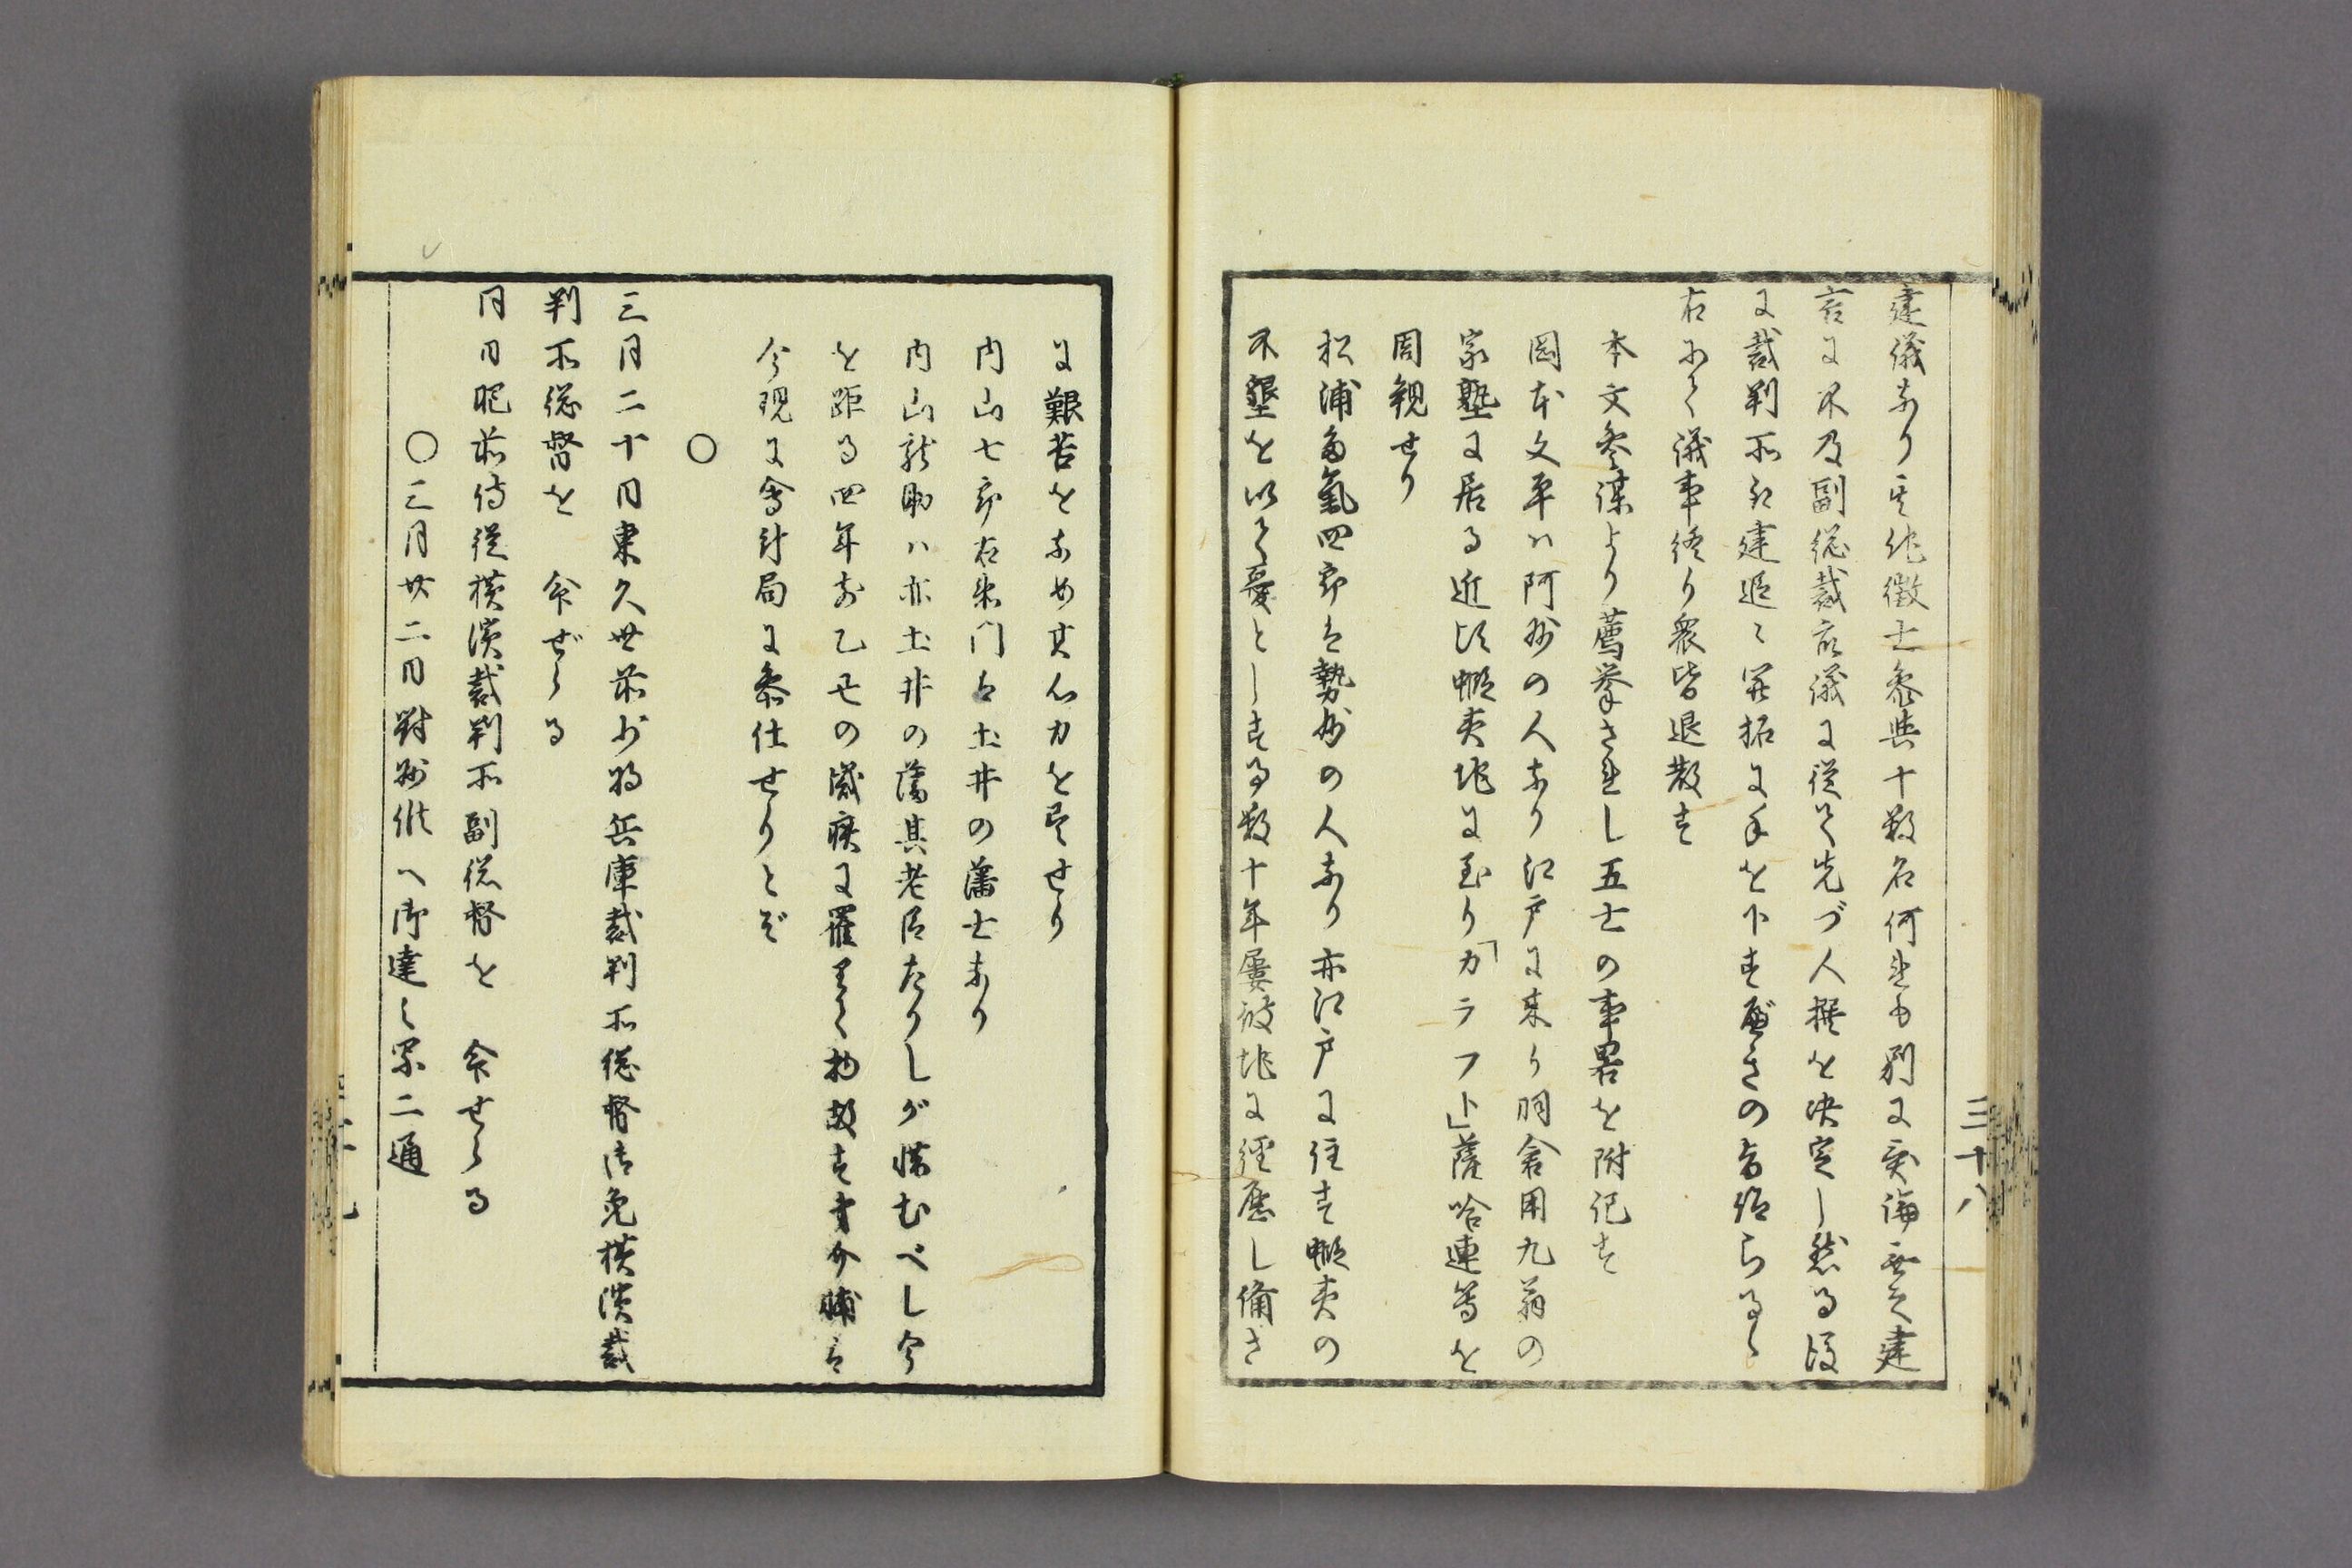 建議あり其他徴士参與十数名何れも別に異論無之建
言に不及副総裁之議に従て先づ人撰を决定し然る後
に裁判所を建追々開拓に手を下す〓きの旨給らる〻
右にて議事終り衆皆退散す
本文参謀より薦挙されし五士の事畧を附記す
岡本文平ハ阿州の人なり江戸に来り羽倉用九翁の
家塾に居る近比蝦夷地に至り「カラフト」薩哈連等を
周観せり
松浦多氣四郎は勢州の人なり亦江戸に住す蝦夷の
不墾を以て憂とする数十年屢彼地に經歴し備さ
三十八
に艱苦をなめ其心力を尽せり
内山七郎右衛門は土井の藩士なり
内山龍助ハ亦土井の藩其老臣たりしが惜むべし今
を距る四年前乙丑の歳疾に罹りて物故す才介輔は
今現に會計局に参仕せりとぞ
〇
三月二十日東久世前少将兵庫裁判所総督御免横濱裁
判所総督を 命ぜらる
同日肥前侍従横濱裁判所副総督を 命せらる
〇三月廿二日對州候へ御達し案二通